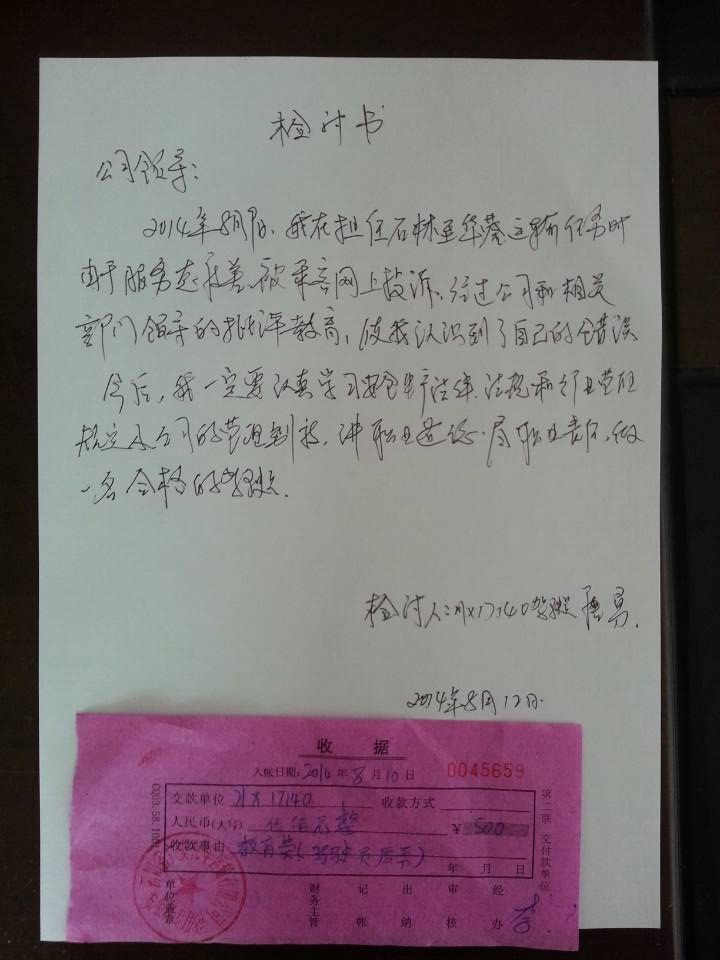 检讨书
公司领导:
2014年8月9日,我在担任石林至华蓥运输任务时
由于服务态度差,被乘客网上投诉,经过公司和相关
部门领导的批评教育,使我认识到了自己的错误
今后,我一定要认真学习安全生产法律、法规和行业管理
规定及公司的管理制度,讲职业道德,尽职业责任,做
一名合格的驾驶员.
检讨人:川X17140驾驶员 唐勇.
2014年8月12日.
收 据
入帐日期:2014年8月10日 0045659
交款单位 川X17140 收款方式
人民币(大写) 伍佰元整 ¥500
收款事由 教育费(驾驶员)
年 月 日
单位盖章 财务主管 记帐 出纳 审核 经办 李
第二联 交付款单位